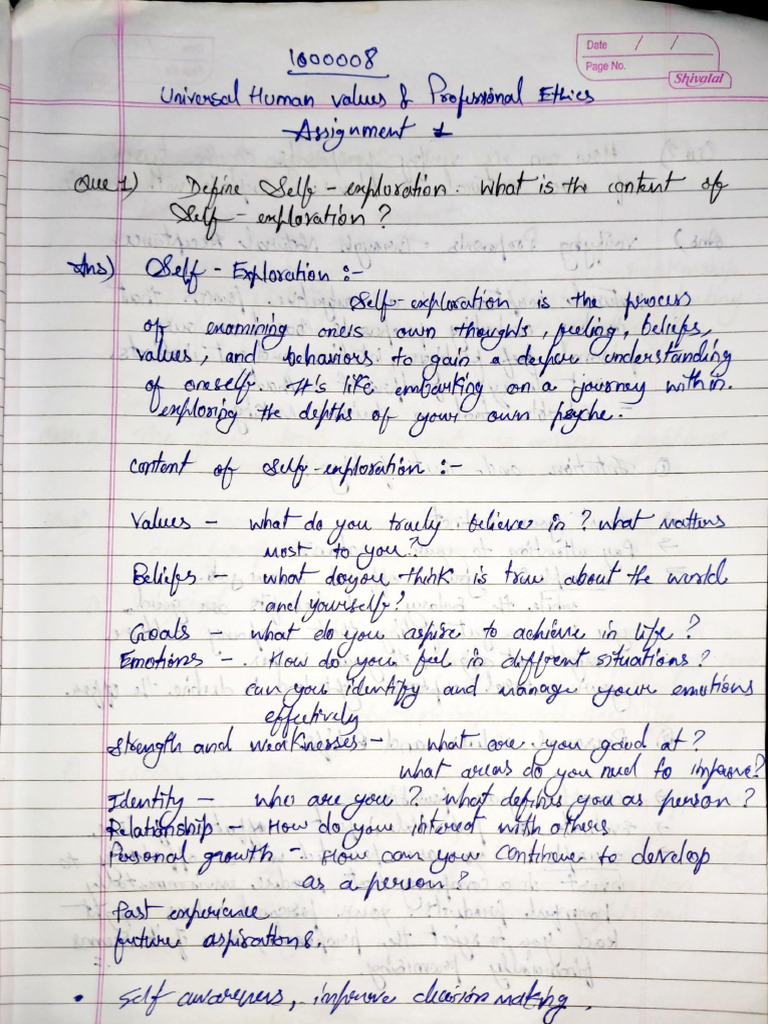 1000008
Date / /
Page No.
Shivalal
Universal Human values & Professional Ethics
Assignment 1
Que 1) Define Self-exploration. What is the content of
Self-exploration?
Ans) Self-Exploration :-
Self-exploration is the process
of examining one's own thoughts, feeling, beliefs,
values, and behaviors to gain a deeper understanding
of oneself. It's like embarking on a journey within.
exploring the depths of your own psyche.
content of self-exploration :-
Values - what do you truely believe in? what matters
most to you?
Beliefs - what do you think is true about the world
and yourself?
Goals - what do you aspire to achieve in life?
Emotions - How do you feel in different situations?
can you identify and manage your emotions
effectively
Strength and weaknesses - what are you good at?
what areas do you need to improve?
Identity - who are you? what defines you as person?
Relationship - How do you interest with others
Personal growth - How can you continue to develop
as a person?
Past experience
future aspirations.
• Self awareness, improve decision making,